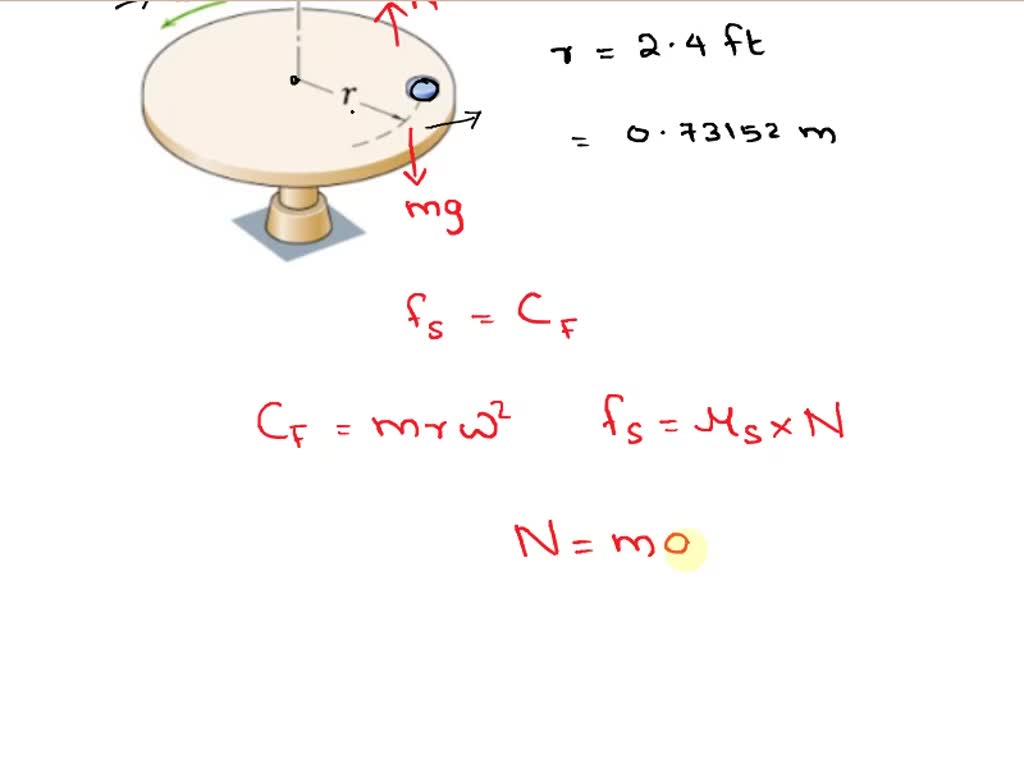 r = 2.4 ft
r
= 0.73152 m
mg
fs = CF
CF = mrω² fs = μs × N
N = m